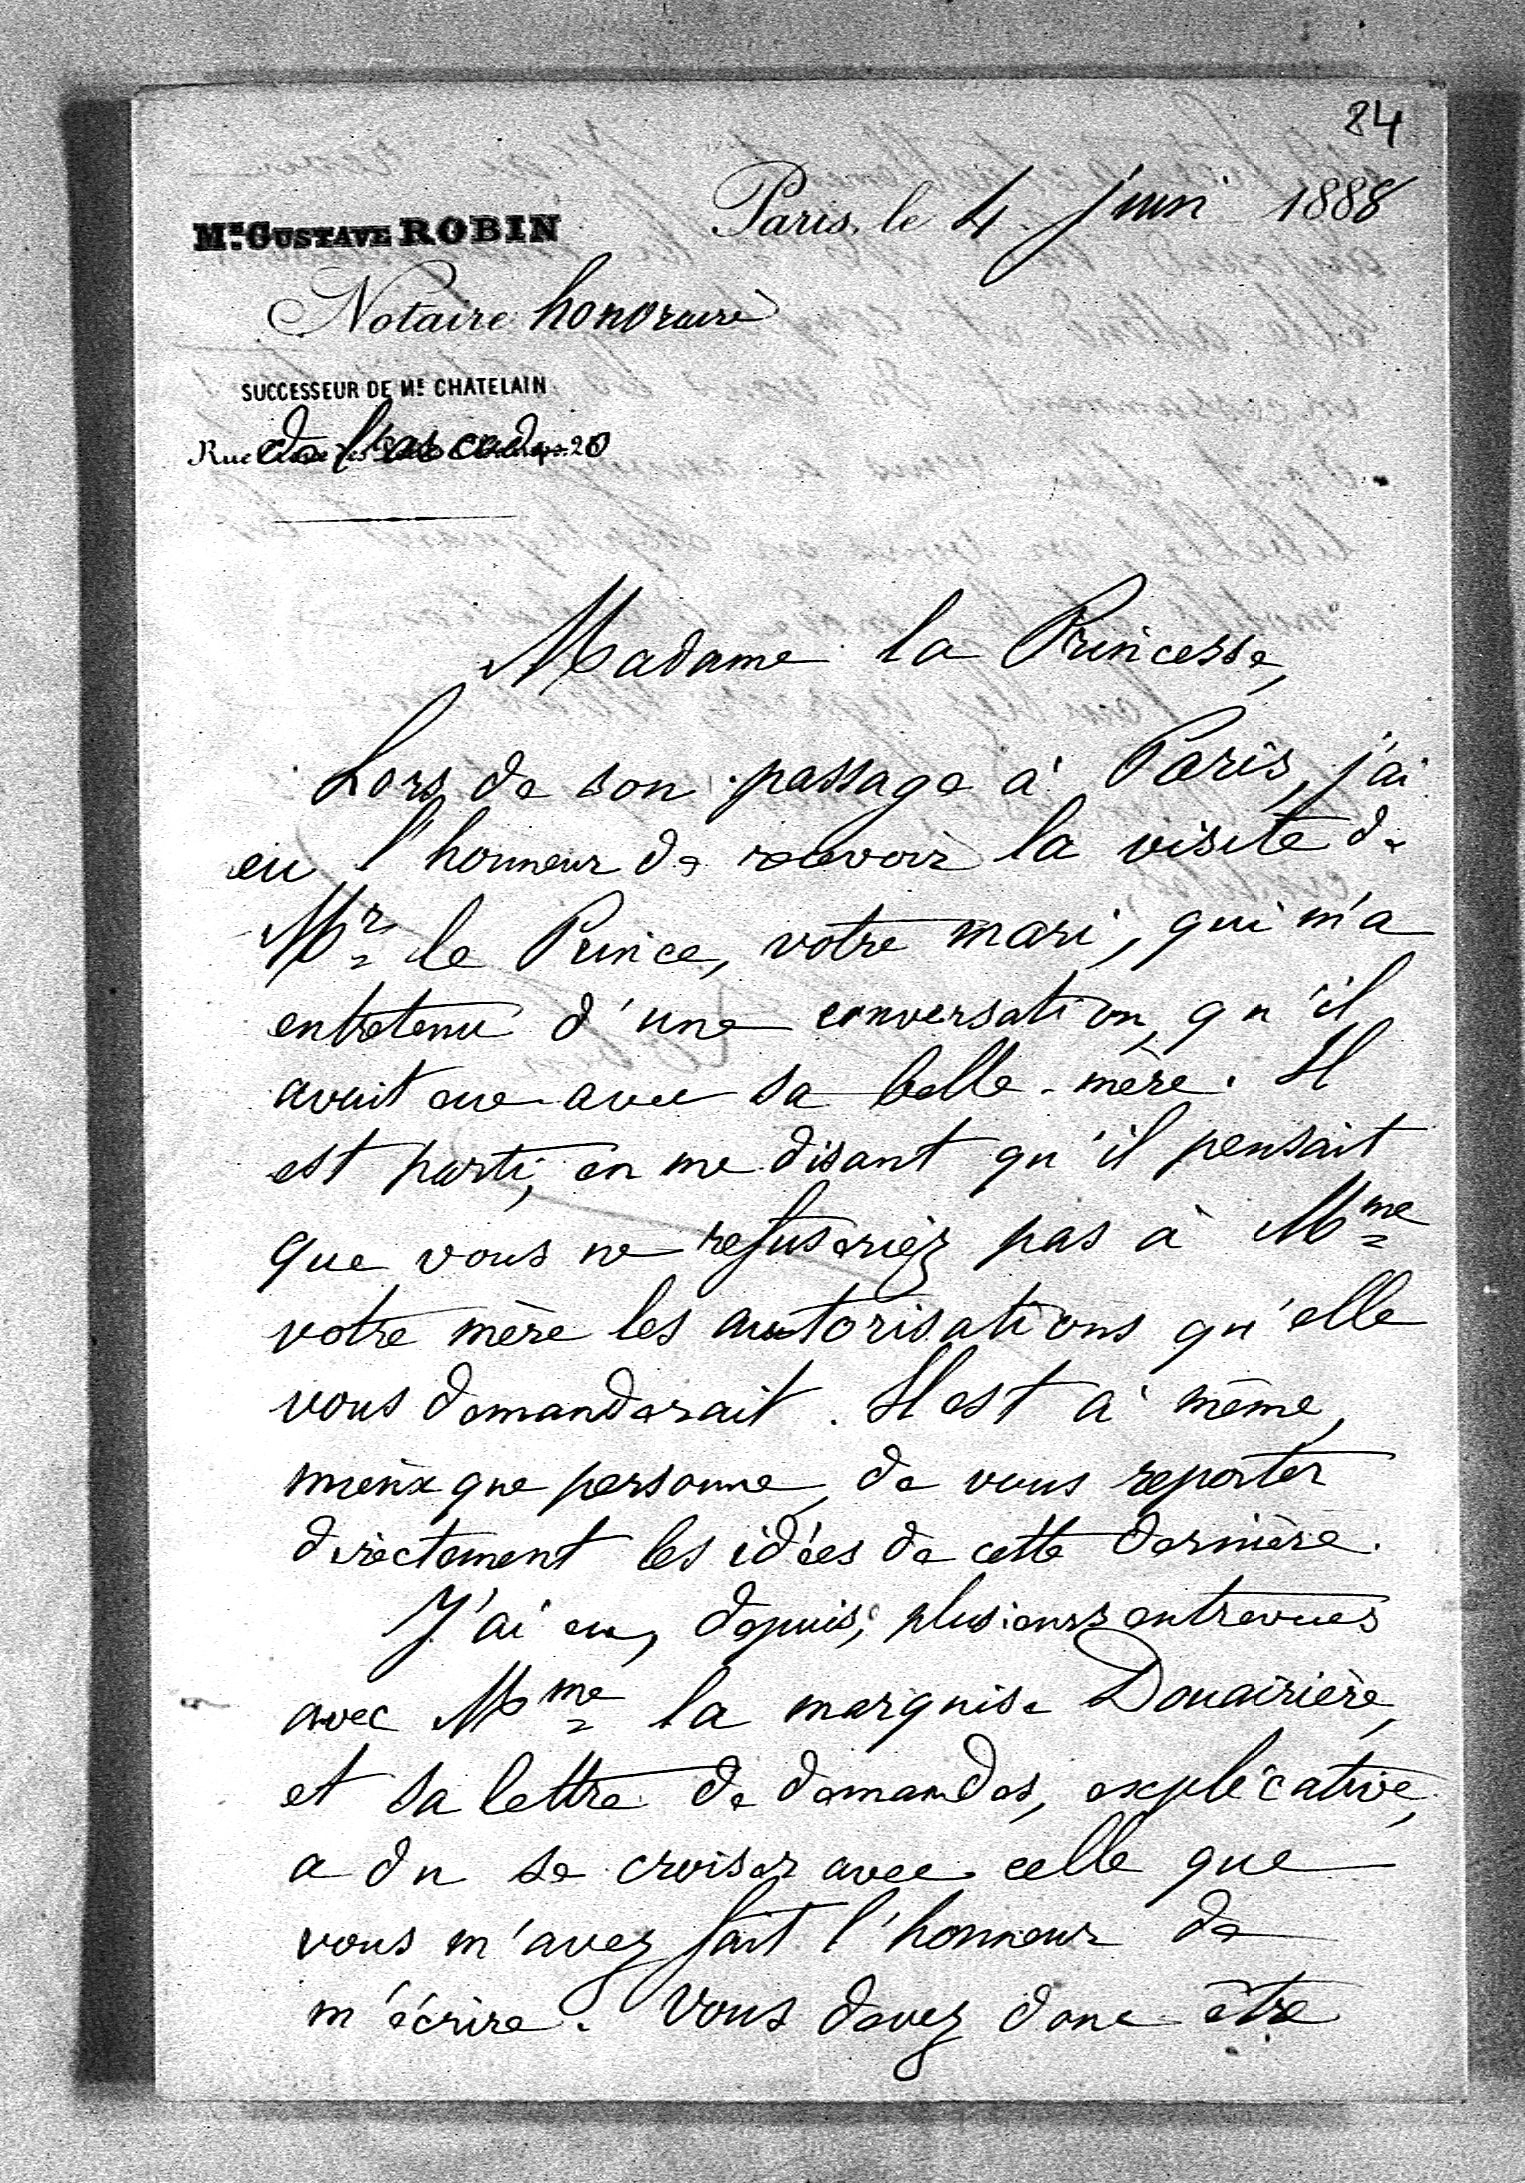 84
Paris, le 4 juin 1888
Me. GUSTAVE ROBIN
Notaire honoraire
SUCCESSEUR DE Me. CHATELAIN
Rue
Madame la Princesse,
Lors de son passage à Paris, j'ai
eu l'honneur de recevoir la visite de
Mr. le Prince, votre mari, qui m'a
entretenu d'une conversation, qu'il
avait eue avec sa belle-mère. Il
est parti, en me disant qu'il pensait
que vous ne refuseriez pas à Mme
votre mère les autorisations qu'elle
vous demanderait. Il est à même,
mieux que personne, de vous reporter
directement les idées de cette dernière.
J'ai eu, depuis, plusieurs entrevues
avec Mme la marquise Douairière,
et sa lettre de demandes, explicative,
a du se croiser avec celle que
vous m'avez fait l'honneur de
m'écrire. Vous devez donc être